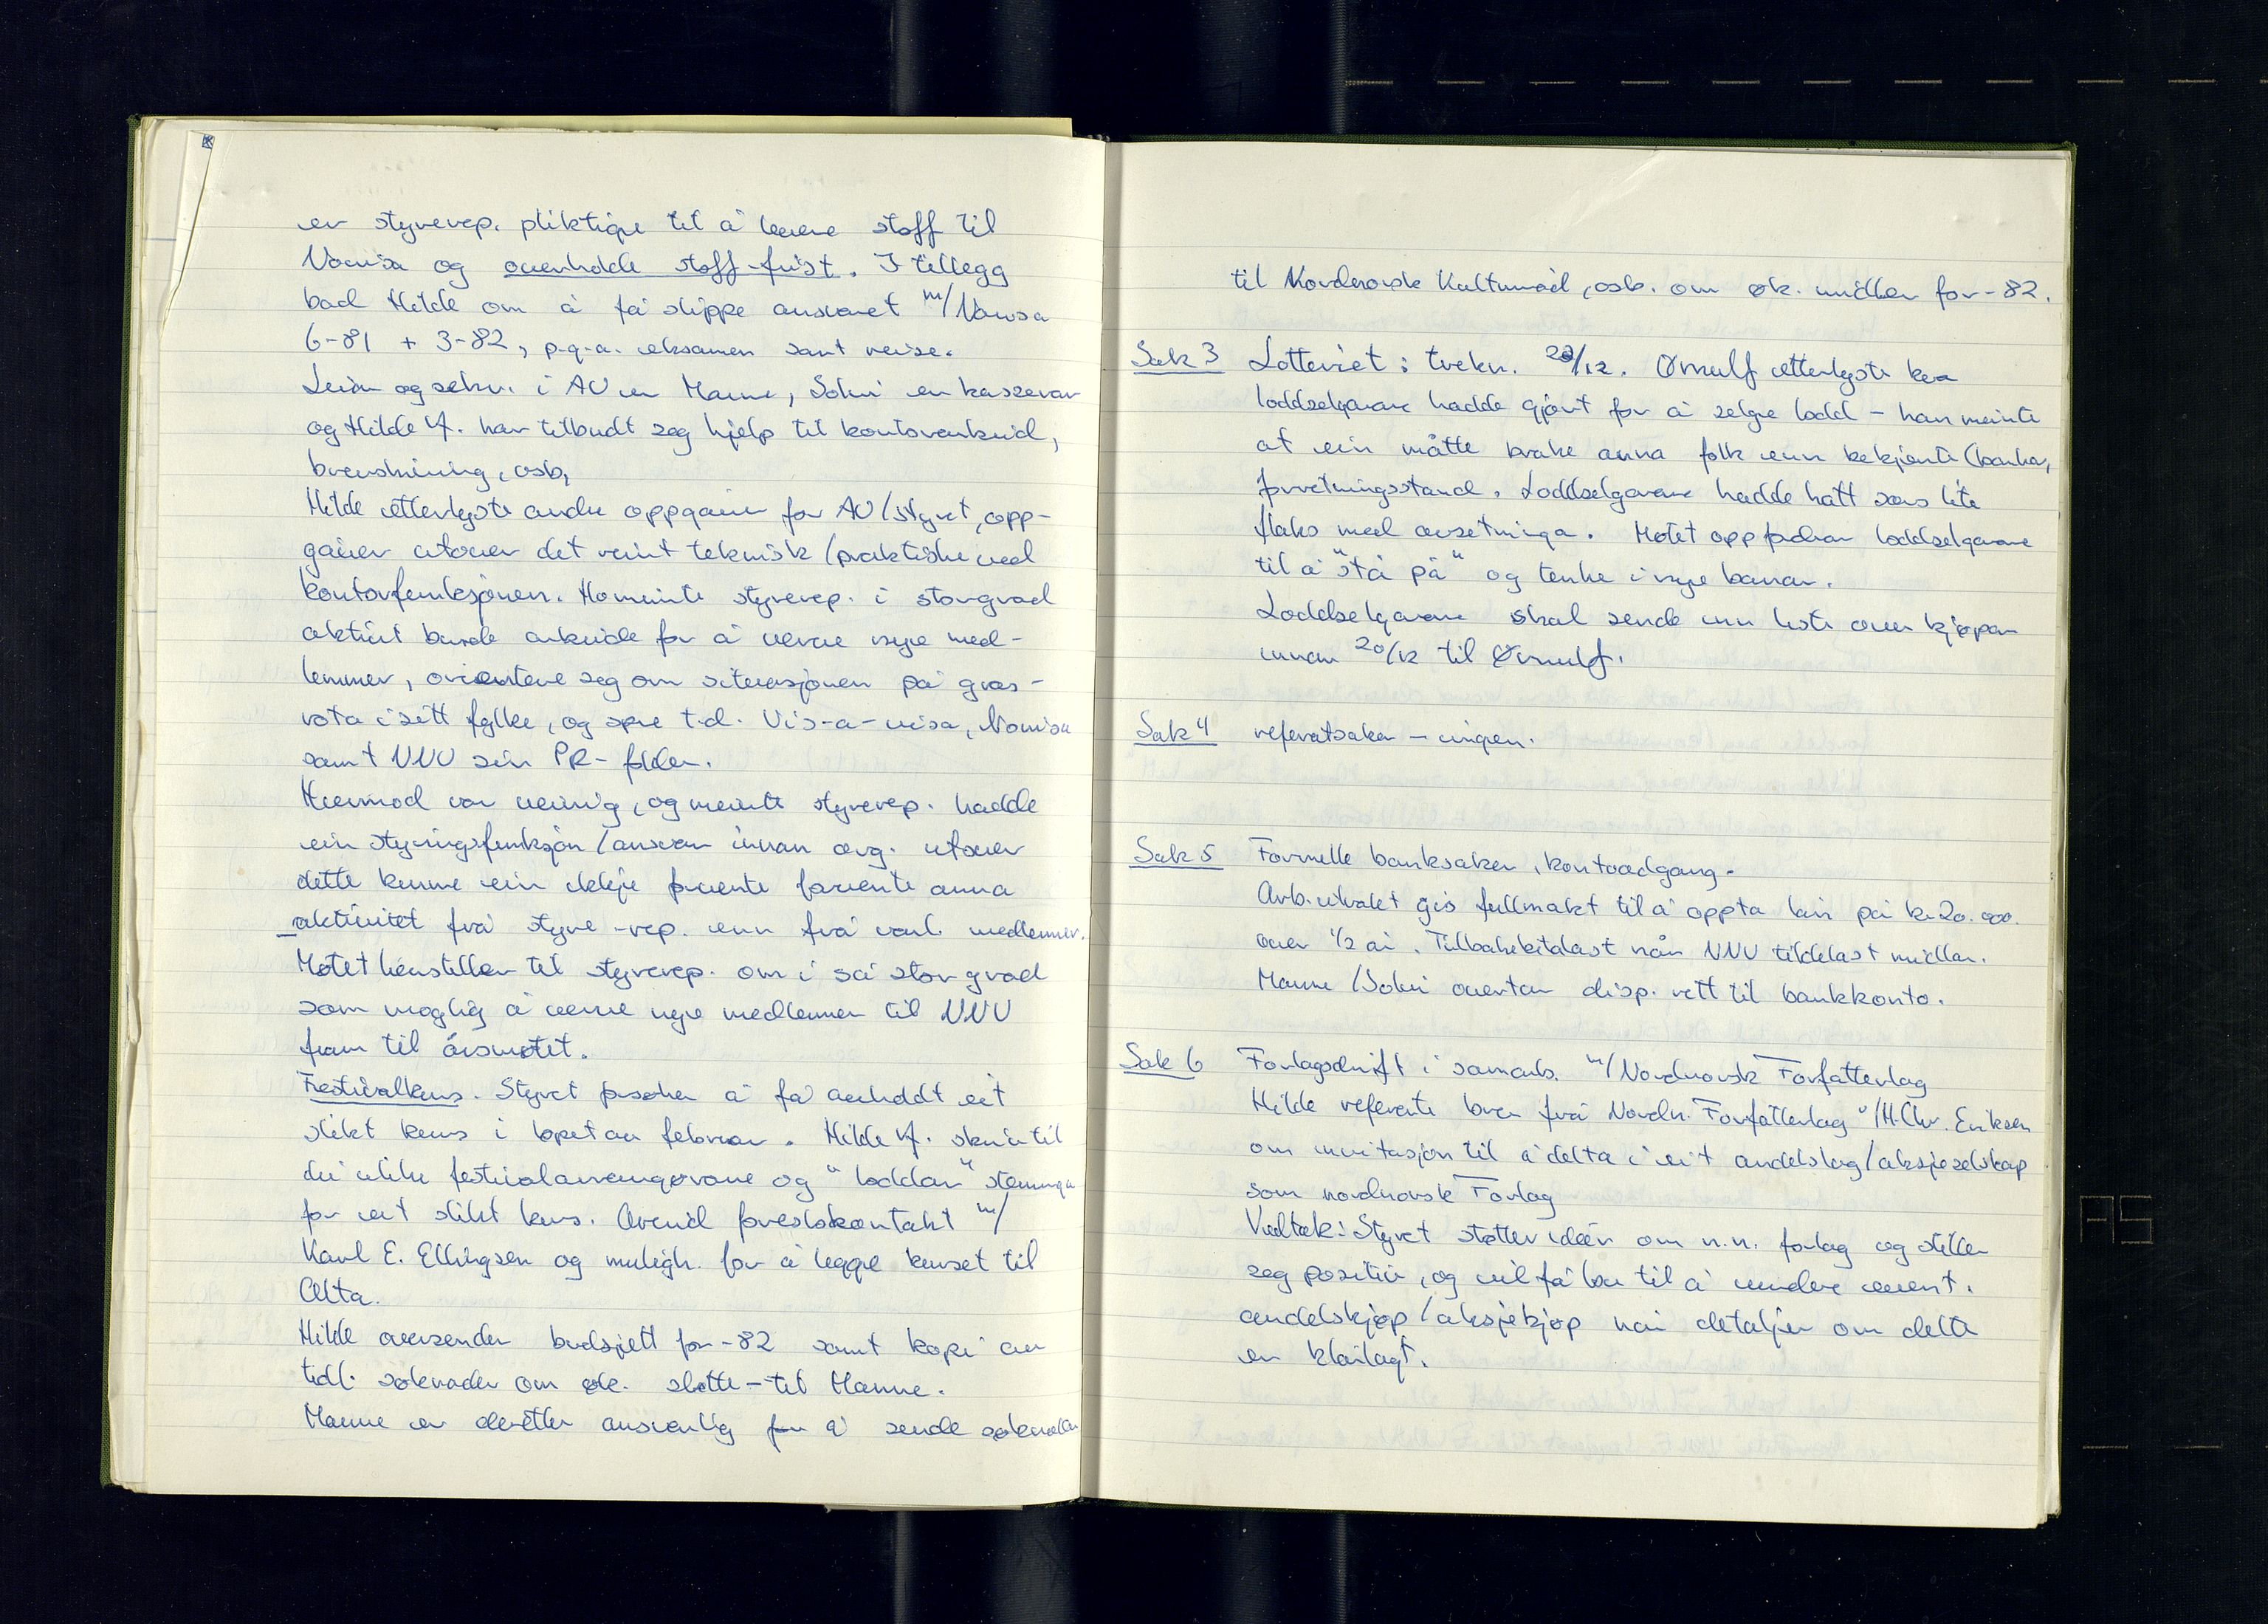 er styrerep. pliktige til å levere stoff til
Novisa og overholde stoff-frist. I tillegg
bad Hilde om å få slippe ansvaret m/Novisa
6-81 + 3-82, p.g.a. eksamen samt reise.
Leiar og sekr. i AU er Manne, Solvi er kasserar
og Hilde A. har tilbudt seg hjelp til kontorarbeid,
brevskriving, osb.
Hilde etterlyste andre oppgåver for AU/styret, opp-
gåver utover det reint teknisk/praktiske ved
kontorfunksjonen. Ho meinte styrerep. i stor grad
aktivt burde arbeide for å verve nye med-
lemmer, orientere seg om situasjonen på gras-
rota i sitt fylke, og spre t.d. Vis-a-visa, Novisa
samt NNV sin PR-folder.
Hermod var uenig, og meinte styrerep. hadde
ein styringsfunksjon/ansvar innan org. utover
dette kunne ein ikkje forvente anna
aktivitet frå styre-rep. enn frå vanl. medlemmer.
Møtet henstiller til styrerep. om i så stor grad
som mogleg å verve nye medlemmer til NNV
fram til årsmøtet.
Festivalkurs. Styret prøver å få avholdt eit
slikt kurs i løpet av februar. Hilde A. skriv til
dei ulike festivalarrangørane og "loddar" stemninga
for eit slikt kurs. Arvid foreslo kontakt m/
Karl E. Ellingsen og muligh. for å legge kurset til
Alta.
Hilde oversender budsjett for -82 samt kopi av
tidl. søknader om øk. støtte - til Manne.
Manne er deretter ansvarlig for å sende søknader
til Nordnorsk Kulturråd, osb. om øk. midler for -82.
Sak 3 Lotteriet: trekn. 22/12. Ørnulf etterlyste kva
loddselgarane hadde gjort for å selge lodd - han meinte
at ein måtte bruke anna folk enn bekjente (banker,
forretningsstand. Loddselgarane hadde hatt så lite
flaks med avsetninga. Møtet oppfordrar loddselgarane
til å "stå på" og tenke i nye banar.
Loddselgarane skal sende inn liste over kjøpar
innan 20/12 til Ørnulf.
Sak 4 referatsaker - ingen.
Sak 5 Formelle banksaker, kontoadgang.
Arb.utvalet gis fullmakt til å oppta lån på kr 20.000.
over 1/2 år. Tilbakebetalast når NNV tildelast midlar.
Manne/Solvi overtar disp. rett til bankkonto.
Sak 6 Forlagsdrift i samarb. m/Nordnorsk Forfatterlag
Hilde refererte brev frå Nordn. Forfatterlag v/H.Chr. Eriksen
om invitasjon til å delta i eit andelslag/aksjeselskap
som nordnorsk Forlag
Vedtak: Styret støtter idéen om n.n. forlag og stiller
seg positiv, og vil få lov til å vurdere event.
andelskjøp/aksjekjøp når detaljer om dette
er klarlagt.